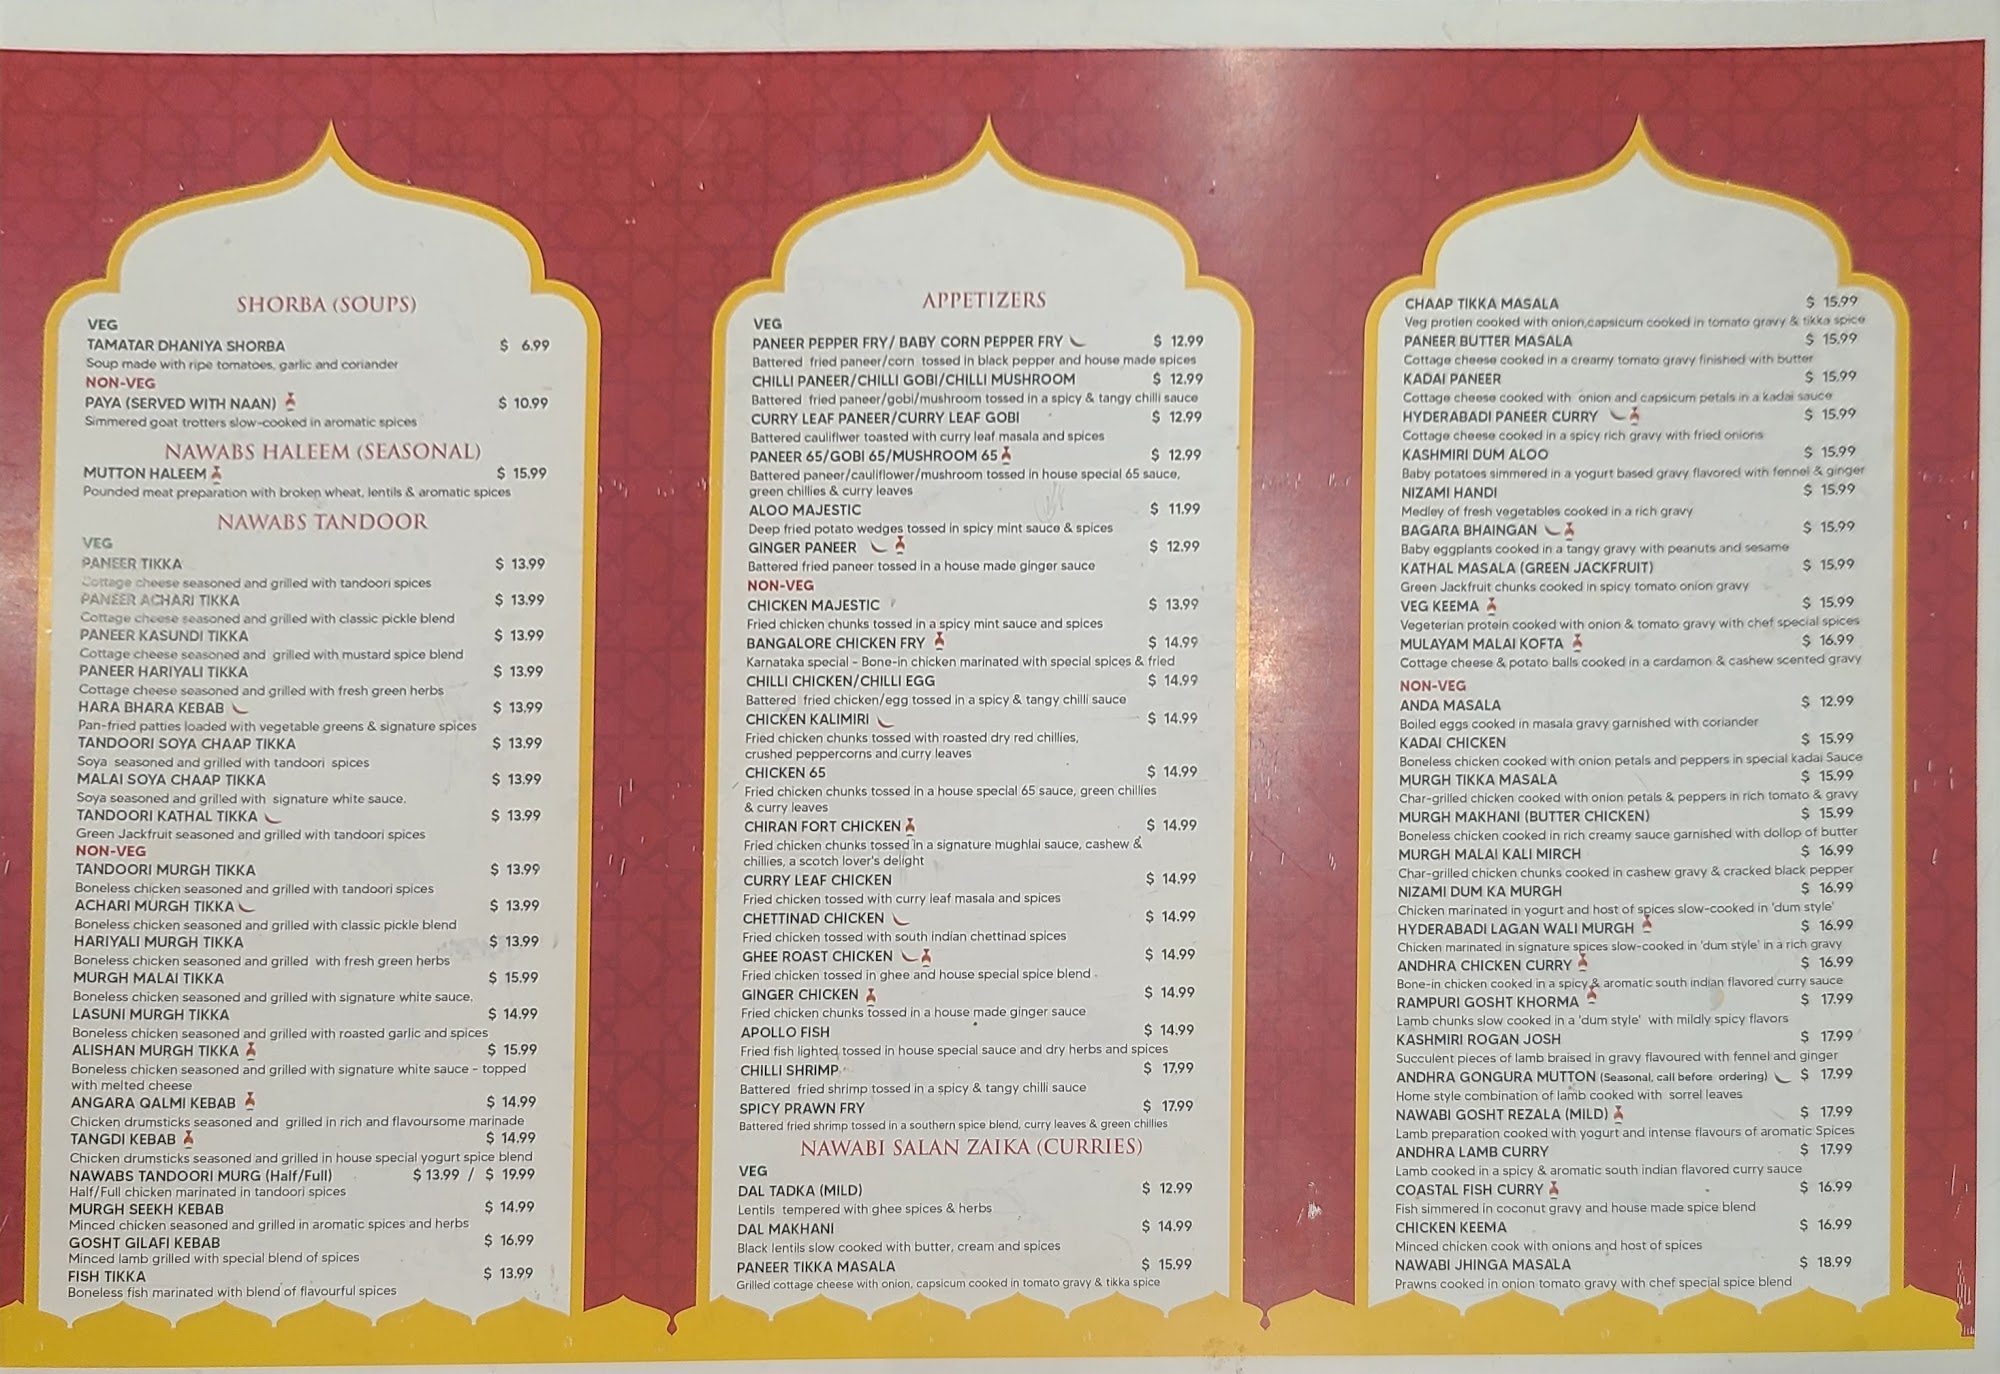 SHORBA (SOUPS)
VEG
TAMATAR DHANIYA SHORBA $ 6.99
Soup made with ripe tomatoes, garlic and coriander
NON-VEG
PAYA (SERVED WITH NAAN) $ 10.99
Simmered goat trotters slow-cooked in aromatic spices
NAWABS HALEEM (SEASONAL)
MUTTON HALEEM $ 15.99
Pounded meat preparation with broken wheat, lentils & aromatic spices
NAWABS TANDOOR
VEG
PANEER TIKKA $ 13.99
Cottage cheese seasoned and grilled with tandoori spices
PANEER ACHARI TIKKA $ 13.99
Cottage cheese seasoned and grilled with classic pickle blend
PANEER KASUNDI TIKKA $ 13.99
Cottage cheese seasoned and grilled with mustard spice blend
PANEER HARIYALI TIKKA $ 13.99
Cottage cheese seasoned and grilled with fresh green herbs
HARA BHARA KEBAB $ 13.99
Pan-fried patties loaded with vegetable greens & signature spices
TANDOORI SOYA CHAAP TIKKA $ 13.99
Soya seasoned and grilled with tandoori spices
MALAI SOYA CHAAP TIKKA $ 13.99
Soya seasoned and grilled with signature white sauce.
TANDOORI KATHAL TIKKA $ 13.99
Green Jackfruit seasoned and grilled with tandoori spices
NON-VEG
TANDOORI MURGH TIKKA $ 13.99
Boneless chicken seasoned and grilled with tandoori spices
ACHARI MURGH TIKKA $ 13.99
Boneless chicken seasoned and grilled with classic pickle blend
HARIYALI MURGH TIKKA $ 13.99
Boneless chicken seasoned and grilled with fresh green herbs
MURGH MALAI TIKKA $ 15.99
Boneless chicken seasoned and grilled with signature white sauce.
LASUNI MURGH TIKKA $ 14.99
Boneless chicken seasoned and grilled with roasted garlic and spices
ALISHAN MURGH TIKKA $ 15.99
Boneless chicken seasoned and grilled with signature white sauce - topped
with melted cheese
ANGARA QALMI KEBAB $ 14.99
Chicken drumsticks seasoned and grilled in rich and flavoursome marinade
TANGDI KEBAB $ 14.99
Chicken drumsticks seasoned and grilled in house special yogurt spice blend
NAWABS TANDOORI MURG (Half/Full) $ 13.99 / $ 19.99
Half/Full chicken marinated in tandoori spices
MURGH SEEKH KEBAB $ 14.99
Minced chicken seasoned and grilled in aromatic spices and herbs
GOSHT GILAFI KEBAB $ 16.99
Minced lamb grilled with special blend of spices
FISH TIKKA $ 13.99
Boneless fish marinated with blend of flavourful spices
APPETIZERS
VEG
PANEER PEPPER FRY/ BABY CORN PEPPER FRY $ 12.99
Battered fried paneer/corn tossed in black pepper and house made spices
CHILLI PANEER/CHILLI GOBI/CHILLI MUSHROOM $ 12.99
Battered fried paneer/gobi/mushroom tossed in a spicy & tangy chilli sauce
CURRY LEAF PANEER/CURRY LEAF GOBI $ 12.99
Battered cauliflwer toasted with curry leaf masala and spices
PANEER 65/GOBI 65/MUSHROOM 65 $ 12.99
Battered paneer/cauliflower/mushroom tossed in house special 65 sauce,
green chillies & curry leaves
ALOO MAJESTIC $ 11.99
Deep fried potato wedges tossed in spicy mint sauce & spices
GINGER PANEER $ 12.99
Battered fried paneer tossed in a house made ginger sauce
NON-VEG
CHICKEN MAJESTIC $ 13.99
Fried chicken chunks tossed in a spicy mint sauce and spices
BANGALORE CHICKEN FRY $ 14.99
Karnataka special - Bone-in chicken marinated with special spices & fried
CHILLI CHICKEN/CHILLI EGG $ 14.99
Battered fried chicken/egg tossed in a spicy & tangy chilli sauce
CHICKEN KALIMIRI $ 14.99
Fried chicken chunks tossed with roasted dry red chillies,
crushed peppercorns and curry leaves
CHICKEN 65 $ 14.99
Fried chicken chunks tossed in a house special 65 sauce, green chillies
& curry leaves
CHIRAN FORT CHICKEN $ 14.99
Fried chicken chunks tossed in a signature mughlai sauce, cashew &
chillies, a scotch lover's delight
CURRY LEAF CHICKEN $ 14.99
Fried chicken tossed with curry leaf masala and spices
CHETTINAD CHICKEN $ 14.99
Fried chicken tossed with south indian chettinad spices
GHEE ROAST CHICKEN $ 14.99
Fried chicken tossed in ghee and house special spice blend
GINGER CHICKEN $ 14.99
Fried chicken chunks tossed in a house made ginger sauce
APOLLO FISH $ 14.99
Fried fish lighted tossed in house special sauce and dry herbs and spices
CHILLI SHRIMP $ 17.99
Battered fried shrimp tossed in a spicy & tangy chilli sauce
SPICY PRAWN FRY $ 17.99
Battered fried shrimp tossed in a southern spice blend, curry leaves & green chillies
NAWABI SALAN ZAIKA (CURRIES)
VEG
DAL TADKA (MILD) $ 12.99
Lentils tempered with ghee spices & herbs
DAL MAKHANI $ 14.99
Black lentils slow cooked with butter, cream and spices
PANEER TIKKA MASALA $ 15.99
Grilled cottage cheese with onion, capsicum cooked in tomato gravy & tikka spice
CHAAP TIKKA MASALA $ 15.99
Veg protien cooked with onion,capsicum cooked in tomato gravy & tikka spice
PANEER BUTTER MASALA $ 15.99
Cottage cheese cooked in a creamy tomato gravy finished with butter
KADAI PANEER $ 15.99
Cottage cheese cooked with onion and capsicum petals in a kadai sauce
HYDERABADI PANEER CURRY $ 15.99
Cottage cheese cooked in a spicy rich gravy with fried onions
KASHMIRI DUM ALOO $ 15.99
Baby potatoes simmered in a yogurt based gravy flavored with fennel & ginger
NIZAMI HANDI $ 15.99
Medley of fresh vegetables cooked in a rich gravy
BAGARA BHAINGAN $ 15.99
Baby eggplants cooked in a tangy gravy with peanuts and sesame
KATHAL MASALA (GREEN JACKFRUIT) $ 15.99
Green Jackfruit chunks cooked in spicy tomato onion gravy
VEG KEEMA $ 15.99
Vegeterian protein cooked with onion & tomato gravy with chef special spices
MULAYAM MALAI KOFTA $ 16.99
Cottage cheese & potato balls cooked in a cardamon & cashew scented gravy
NON-VEG
ANDA MASALA $ 12.99
Boiled eggs cooked in masala gravy garnished with coriander
KADAI CHICKEN $ 15.99
Boneless chicken cooked with onion petals and peppers in special kadai Sauce
MURGH TIKKA MASALA $ 15.99
Char-grilled chicken cooked with onion petals & peppers in rich tomato & gravy
MURGH MAKHANI (BUTTER CHICKEN) $ 15.99
Boneless chicken cooked in rich creamy sauce garnished with dollop of butter
MURGH MALAI KALI MIRCH $ 16.99
Char-grilled chicken chunks cooked in cashew gravy & cracked black pepper
NIZAMI DUM KA MURGH $ 16.99
Chicken marinated in yogurt and host of spices slow-cooked in 'dum style'
HYDERABADI LAGAN WALI MURGH $ 16.99
Chicken marinated in signature spices slow-cooked in 'dum style' in a rich gravy
ANDHRA CHICKEN CURRY $ 16.99
Bone-in chicken cooked in a spicy & aromatic south indian flavored curry sauce
RAMPURI GOSHT KHORMA $ 17.99
Lamb chunks slow cooked in a 'dum style' with mildly spicy flavors
KASHMIRI ROGAN JOSH $ 17.99
Succulent pieces of lamb braised in gravy flavoured with fennel and ginger
ANDHRA GONGURA MUTTON (Seasonal, call before ordering) $ 17.99
Home style combination of lamb cooked with sorrel leaves
NAWABI GOSHT REZALA (MILD) $ 17.99
Lamb preparation cooked with yogurt and intense flavours of aromatic Spices
ANDHRA LAMB CURRY $ 17.99
Lamb cooked in a spicy & aromatic south indian flavored curry sauce
COASTAL FISH CURRY $ 16.99
Fish simmered in coconut gravy and house made spice blend
CHICKEN KEEMA $ 16.99
Minced chicken cook with onions and host of spices
NAWABI JHINGA MASALA $ 18.99
Prawns cooked in onion tomato gravy with chef special spice blend